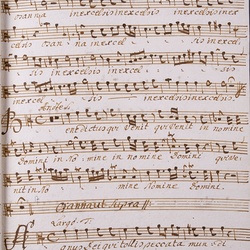 osanna inexcelsis inexcelsis inexcel
celsis osanna inexcel sis inexcelsis
sis inexcel sis inexcel
inexcel sis inexcelsis inexcelsis.
Andte
benedictus qui venit qui venit in nomine
Domine in no mine in nomine Domini qui ve
nit in no mine in nomine Domini.
Osanna ut supra
Largo
Agnus Dei qui tollis peccata mundi